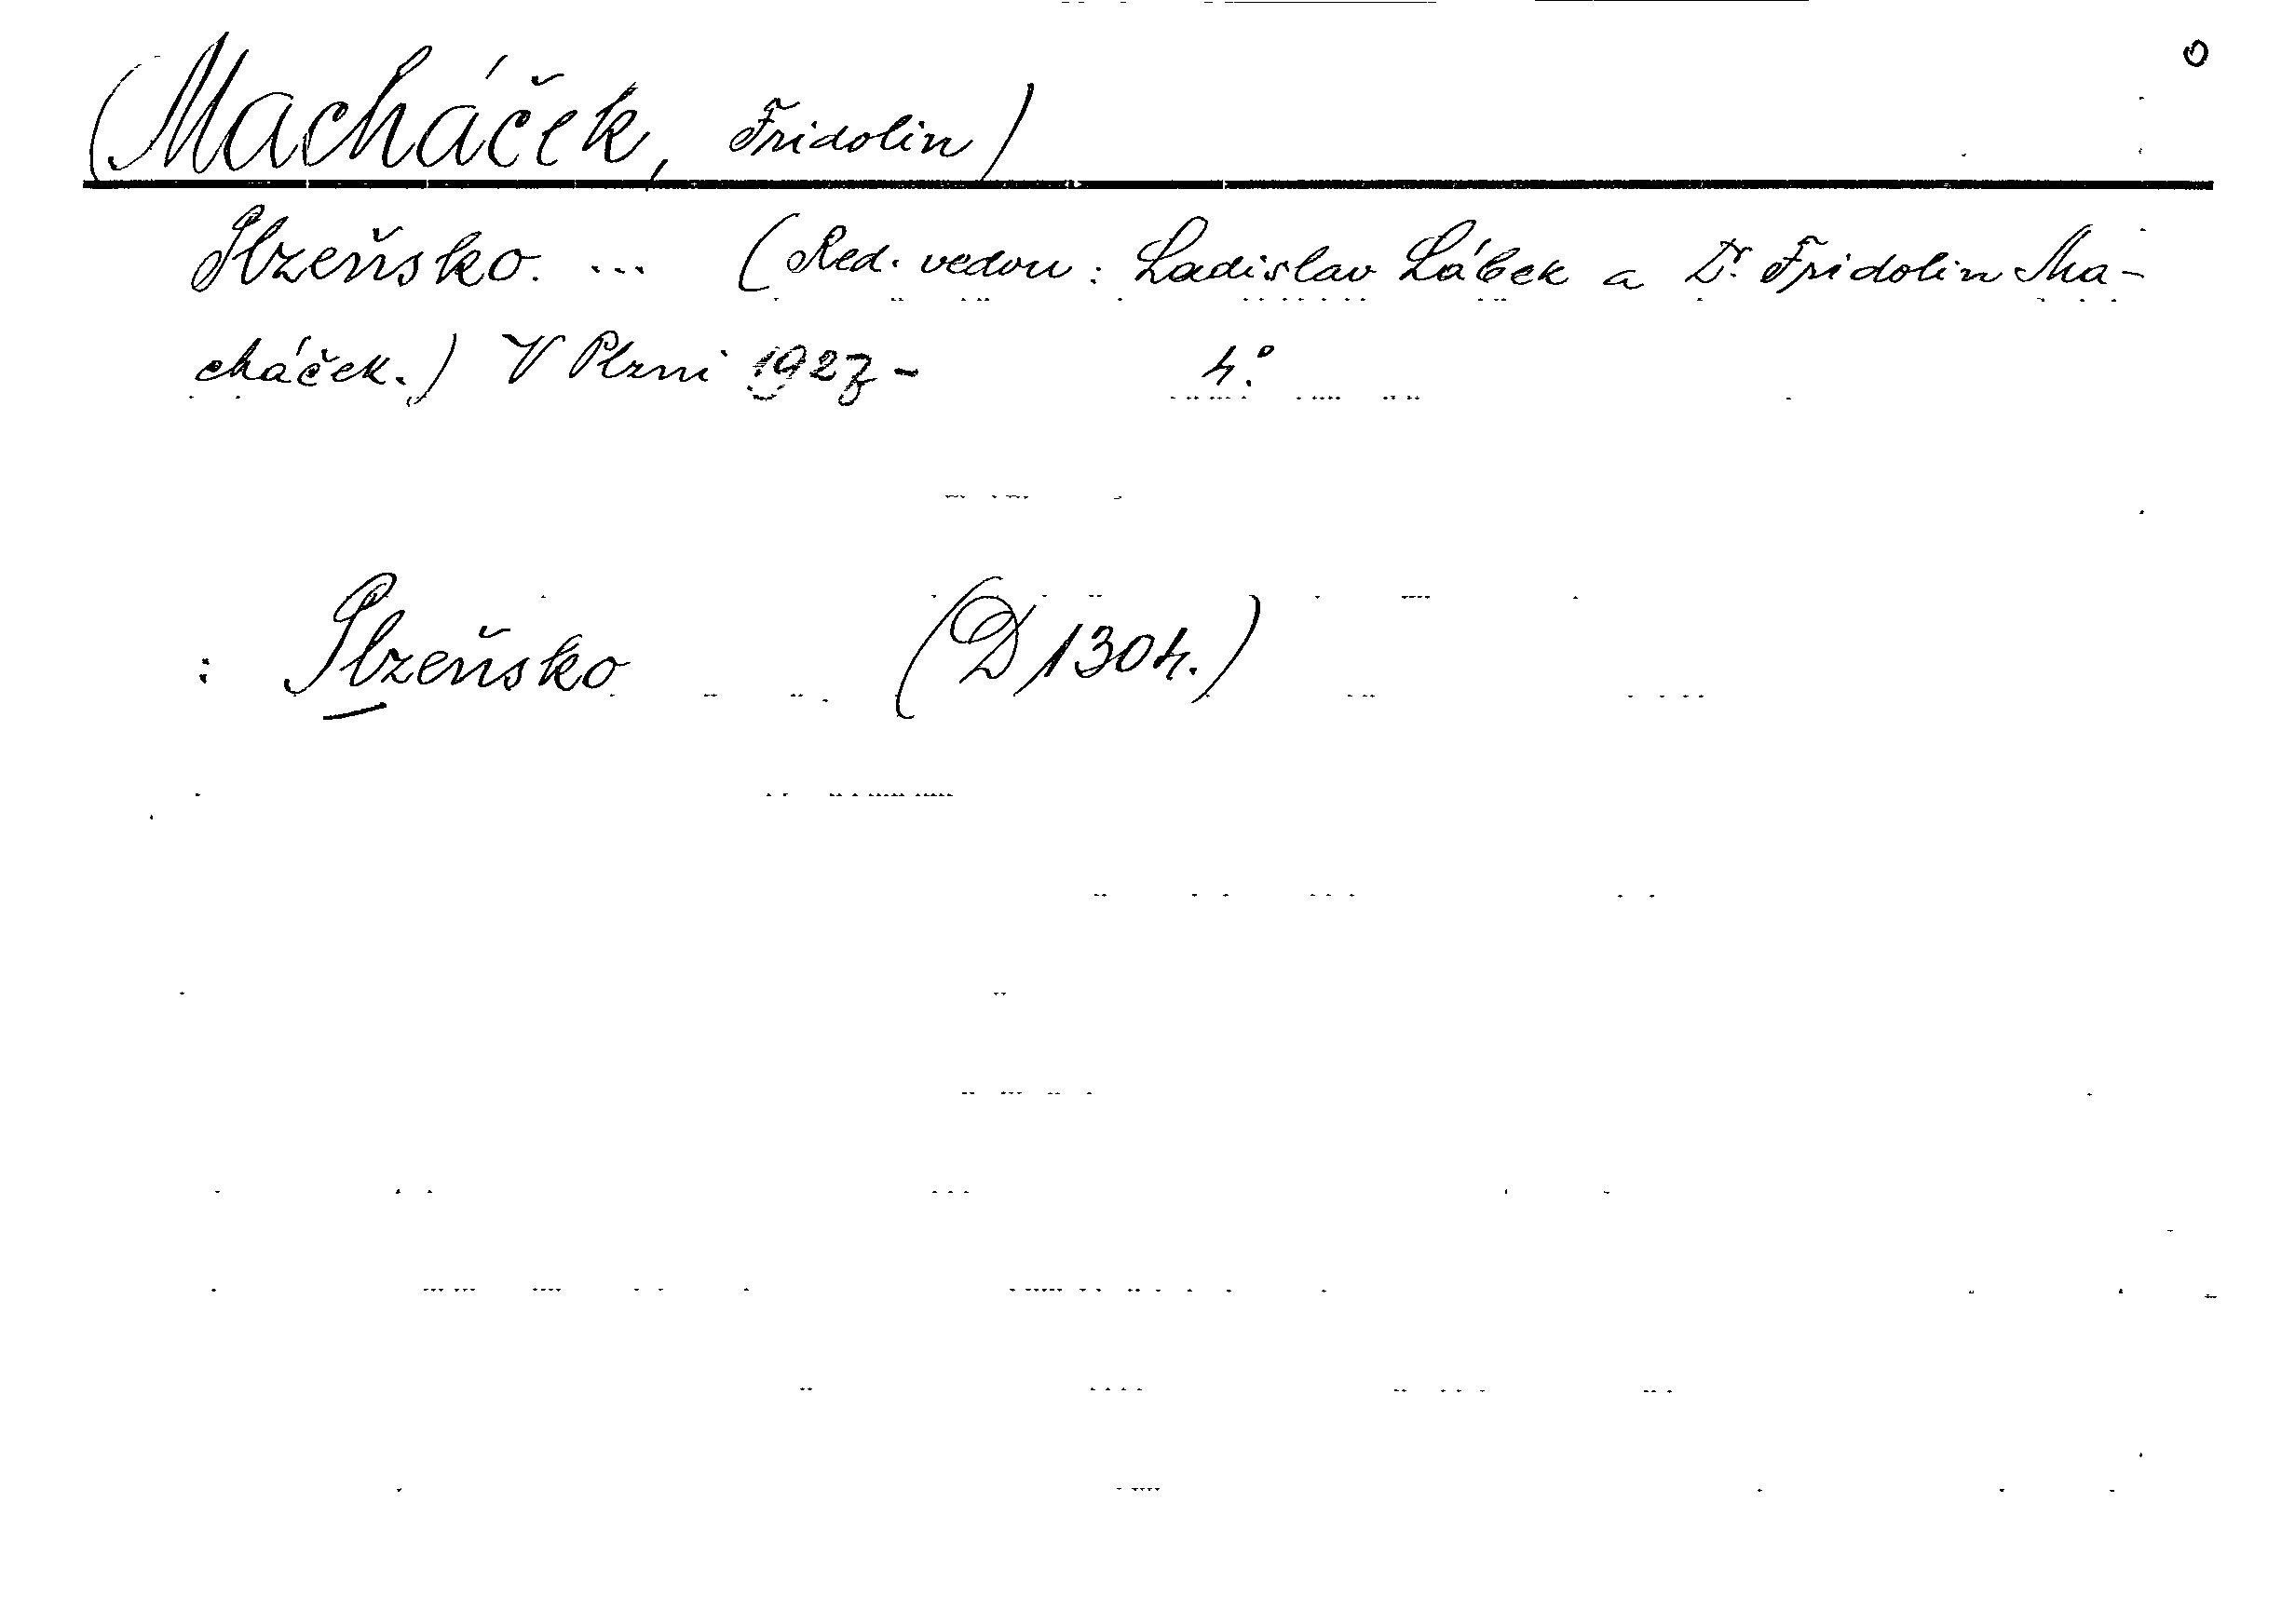 (Macháček, Fridolin)
Plzeňsko. ... (Red. vedou: Ladislav Lábek a Dr. Fridolin Ma-
cháček.) V Plzni 1927- 4.°
: Plzeňsko (D 1304.)